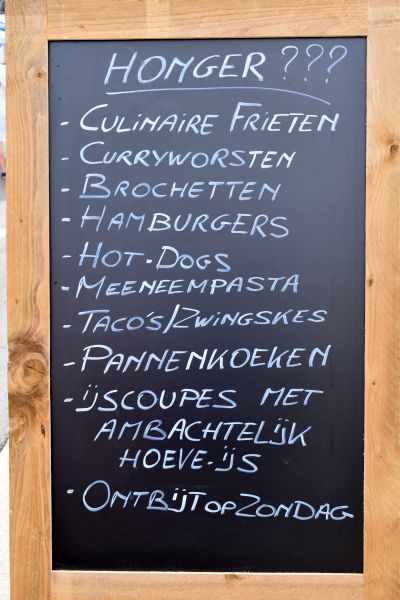 HONGER ???
- CULINAIRE FRIETEN
- CURRYWORSTEN
- BROCHETTEN
- HAMBURGERS
- HOT-DOGS
- MEENEEMPASTA
- TACO'S/ZWINGSKES
- PANNENKOEKEN
- IJSCOUPES MET
AMBACHTELIJK
HOEVE-IJS
- ONTBIJT OP ZONDAG